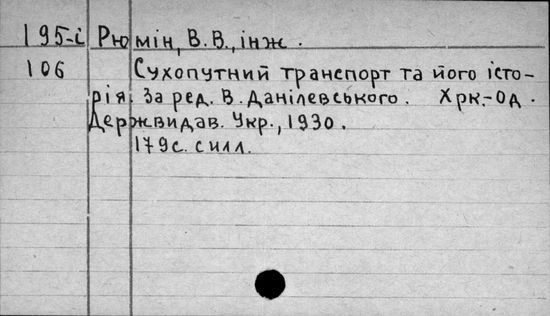 195-і Рюмін, В.В., інж.
106 Сухопутний транспорт та його істо-
рія. За ред. В. Данілевського. Хрк.-Од.
Держвидав. Укр., 1930.
179с. силл.